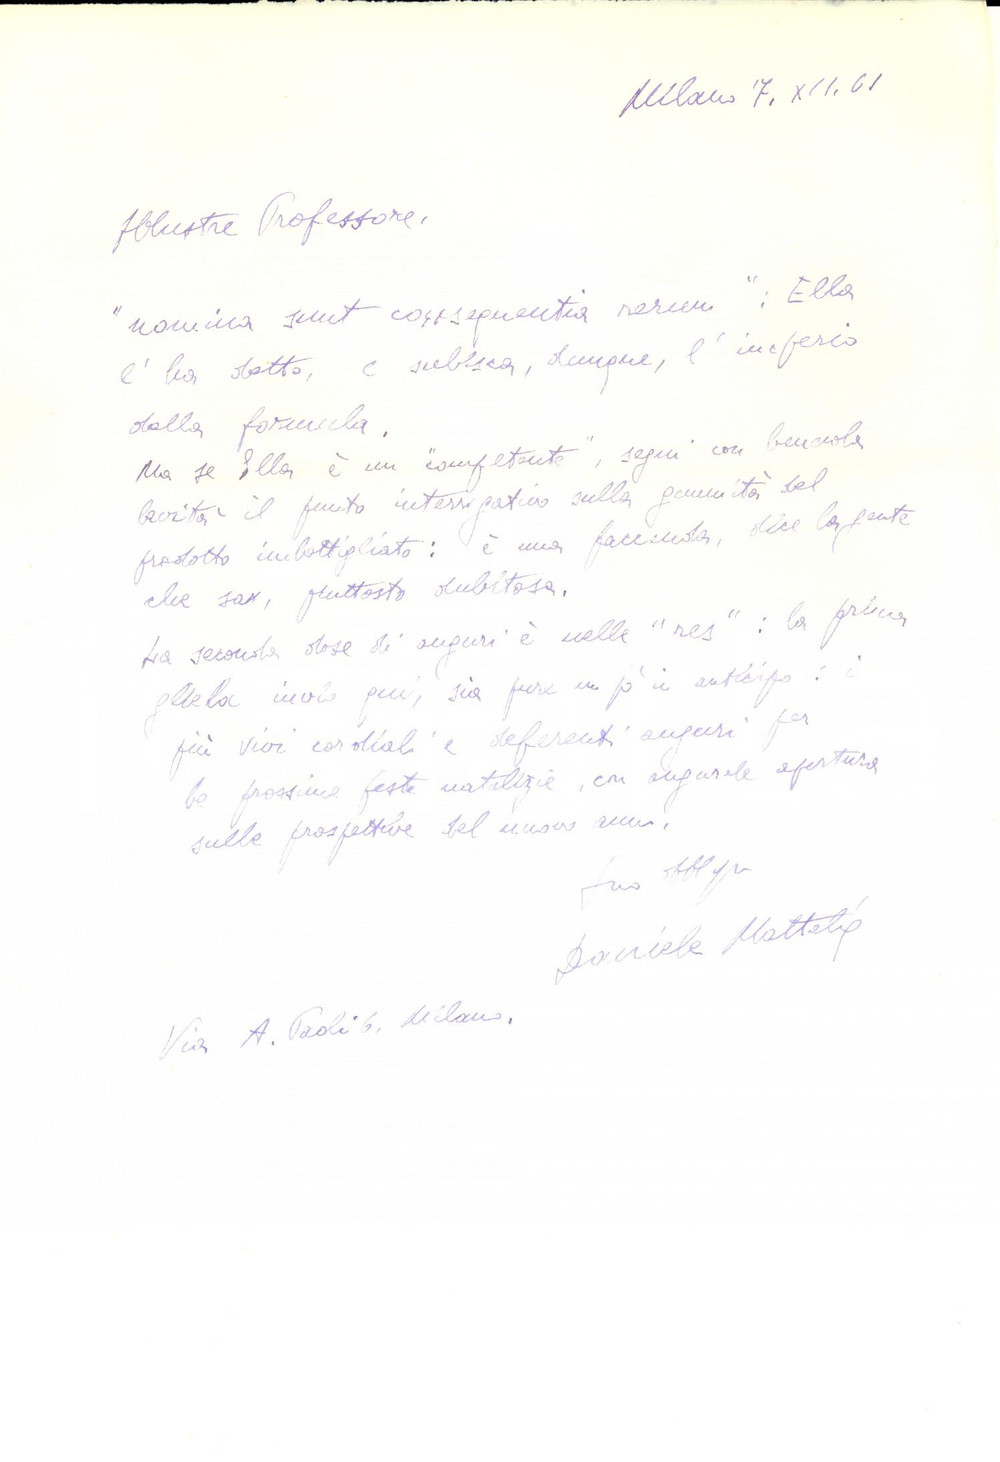 Milano 7. XII. 61
Illustre Professore.
"nomina sunt consequentia rerum": Ella
l'ha detto, e subisca, dunque, l'imperio
della formula.
Ma se Ella è un "competente", segni con benevola
levità il punto interrogativo sulla genuinità del
prodotto imbottigliato: è una faccenda, dice la gente
che sa, piuttosto dubitosa.
La seconda dose di auguri è nelle "res": la prima
gliela invio qui, sia pure un po' in anticipo: i
più vivi cordiali e deferenti auguri per
le prossime feste natalizie, con augurale apertura
sulle prospettive del nuovo anno.
Suo
Daniele Mattalia
Via A. Milano.